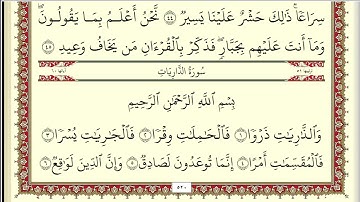 سِرَاعًا ۚ ذَٰلِكَ حَشْرٌ عَلَيْنَا يَسِيرٌ ٤٤ نَّحْنُ أَعْلَمُ بِمَا يَقُولُونَ ۖ
وَمَا أَنتَ عَلَيْهِم بِجَبَّارٍ ۖ فَذَكِّرْ بِالْقُرْءَانِ مَن يَخَافُ وَعِيدِ ٤٥
سُورَةُ الذَّارِيَاتِ
بِسْمِ اللَّهِ الرَّحْمَٰنِ الرَّحِيمِ
وَالذَّارِيَاتِ ذَرْوًا ١ فَالْحَامِلَاتِ وِقْرًا ٢ فَالْجَارِيَاتِ يُسْرًا ٣
فَالْمُقَسِّمَاتِ أَمْرًا ٤ إِنَّمَا تُوعَدُونَ لَصَادِقٌ ٥ وَإِنَّ الدِّينَ لَوَاقِعٌ ٦
٥٢٠